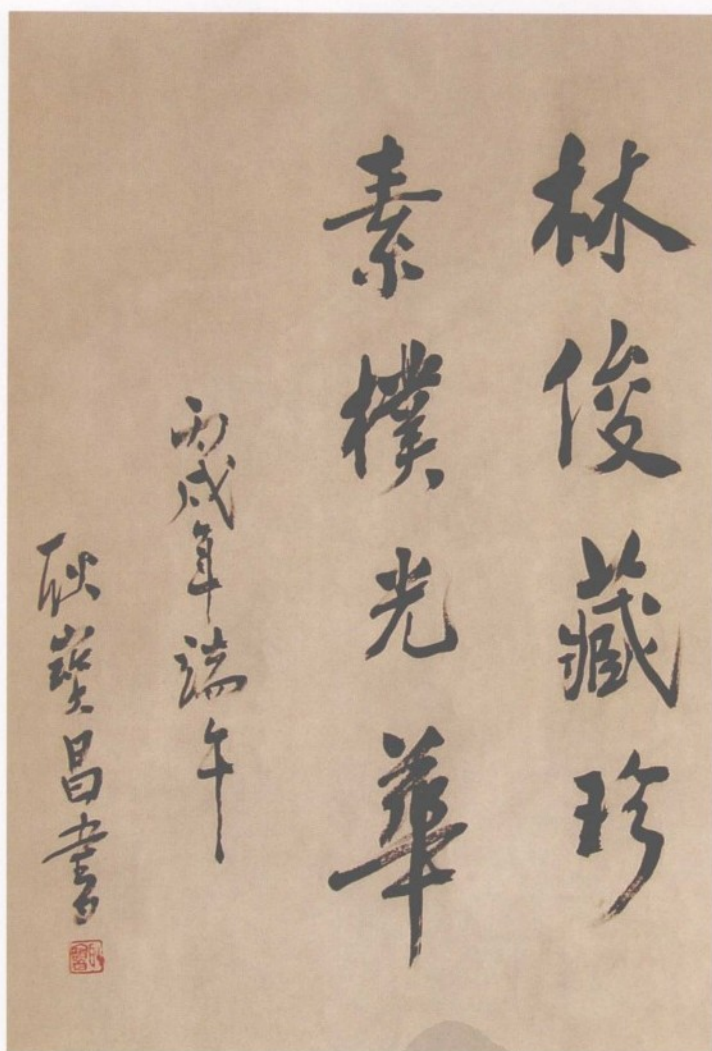 林俊藏珍
素樸光華
丙戌年端午
耿寶昌書